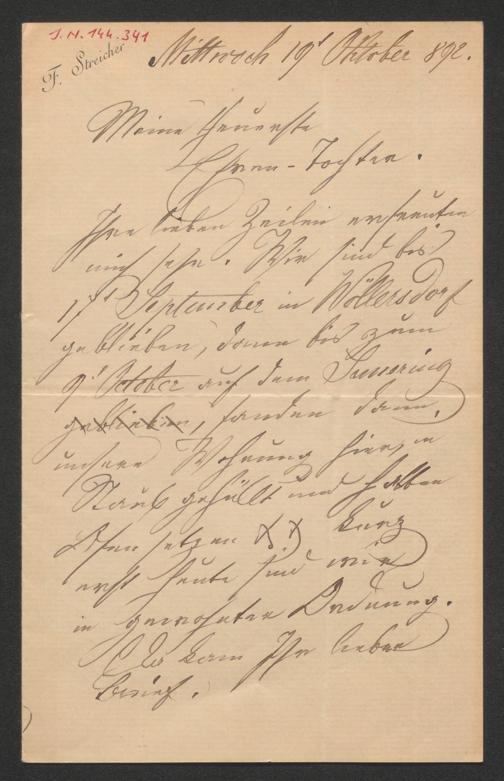 J.N. 144.341
F. Streicher
Mittwoch 19t Oktober 892.
Meine theuerste
Ehren-Tochter.
Ihre lieben Zeilen erfreuten
mich sehr. Wir sind bis
17t September in Wöllersdorf
geblieben, dann bis zum
9t October auf dem Semering
geblieben, fanden dann,
unsere Wohnung hier, in
Staub gehüllt und haben
Ofen setzen xx kurz
erst heute sind wir
in gewohnter Ordnung.
Da kam Ihr lieber
Brief.